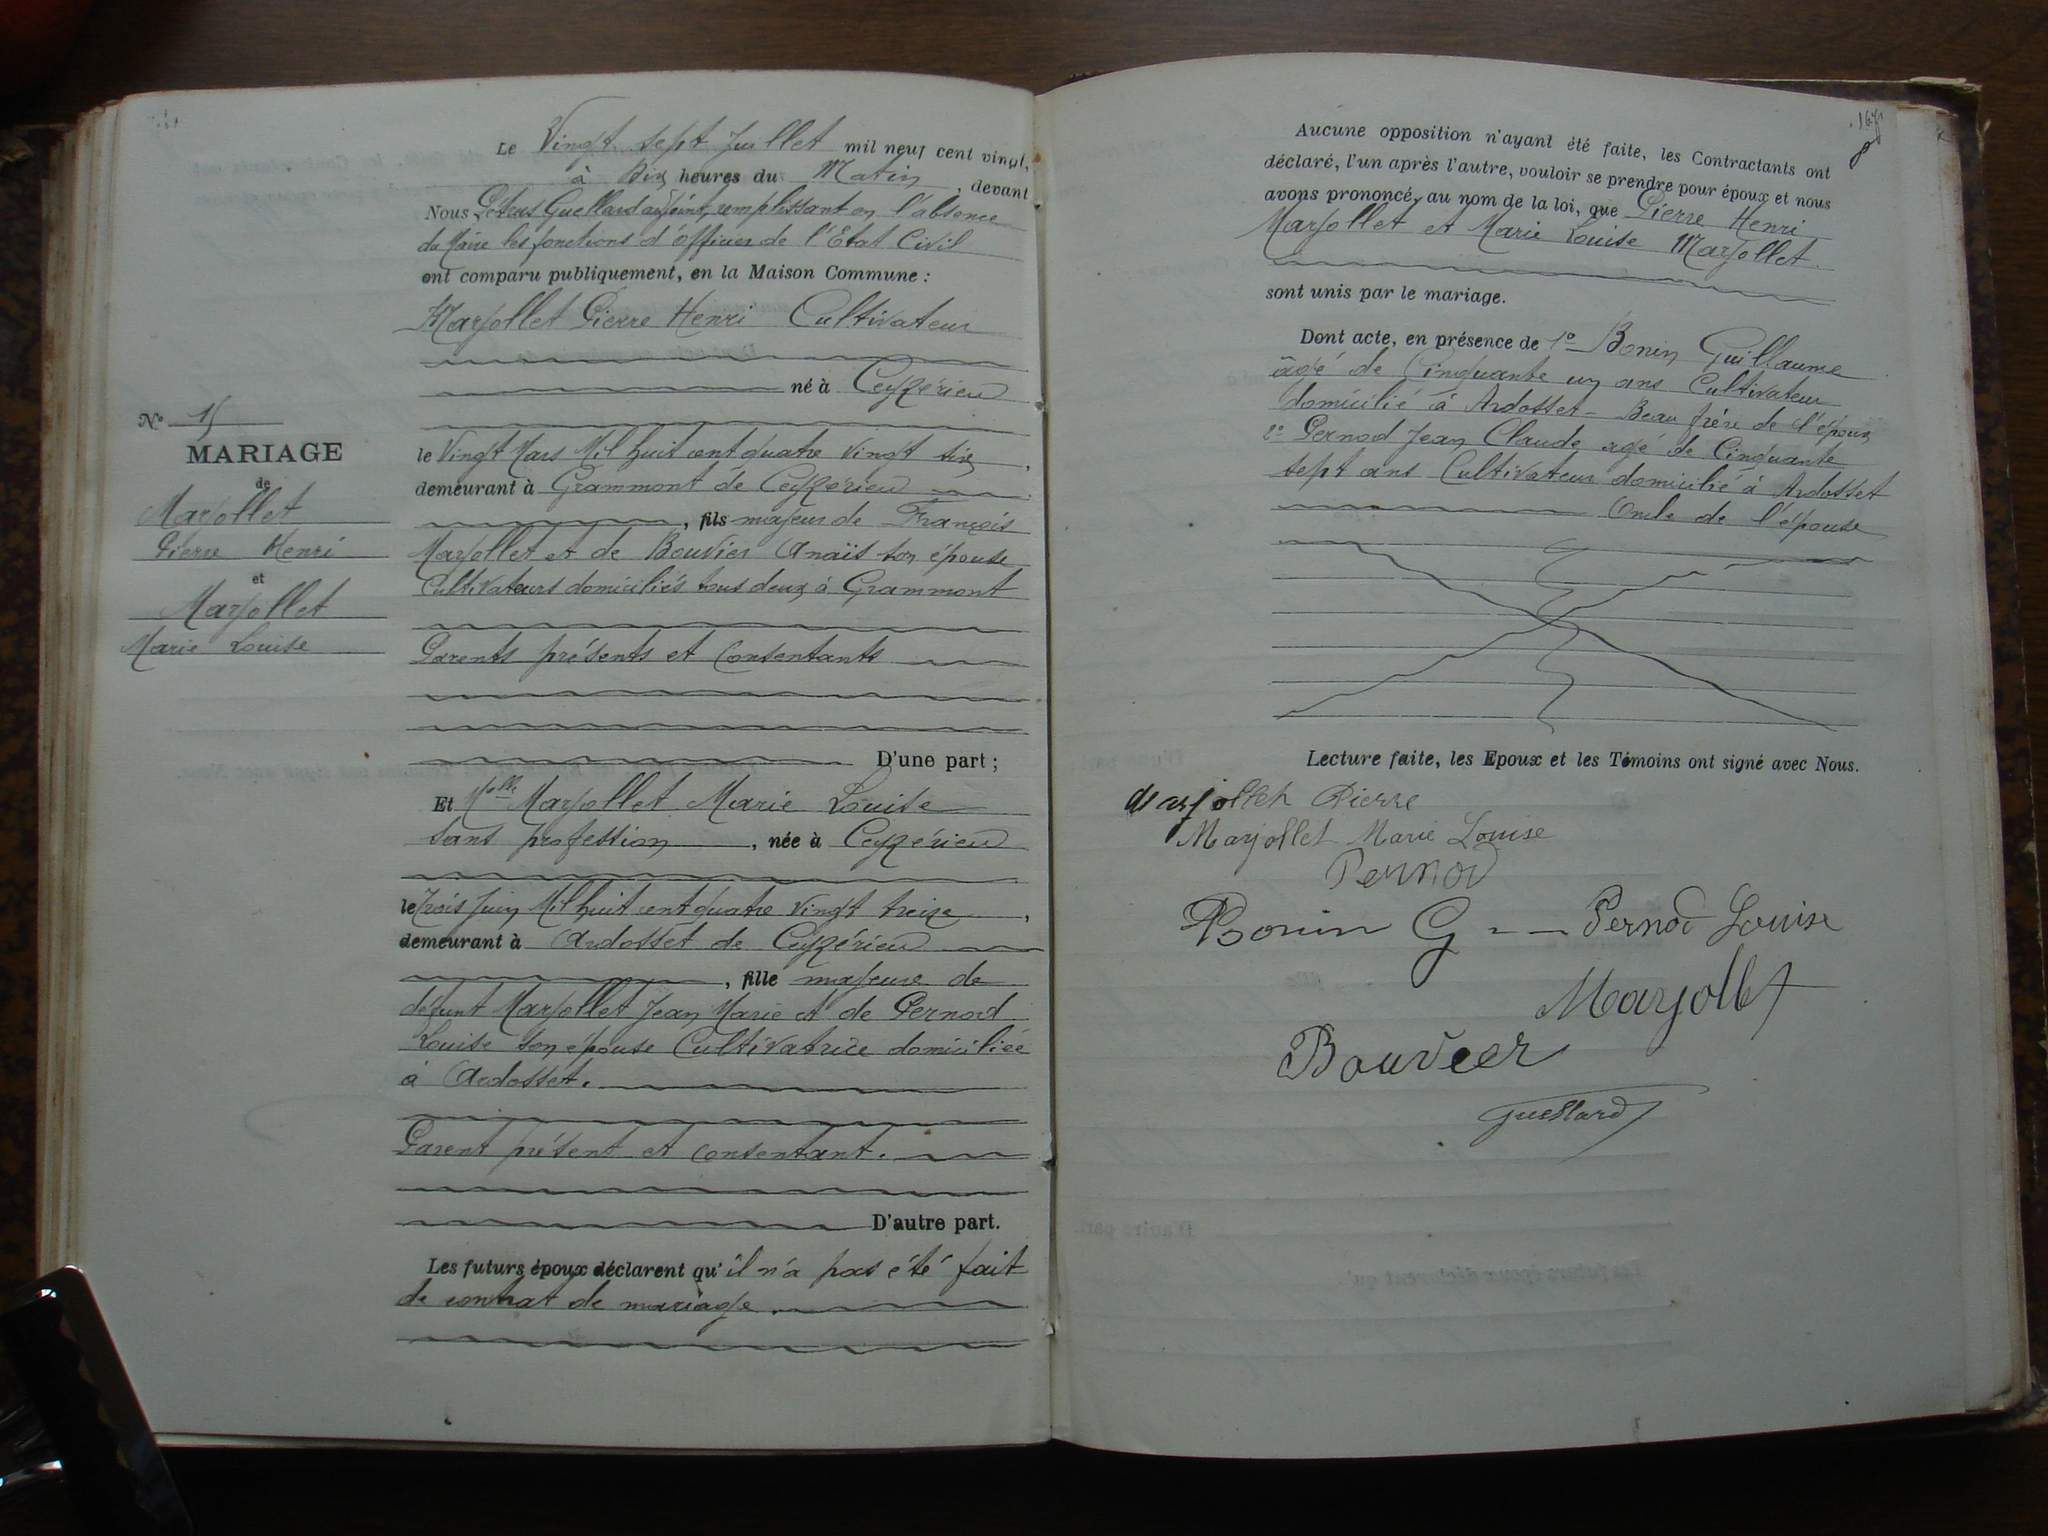 Le Vingt sept Juillet mil neuf cent vingt,
à Dix heures du Matin, devant
Nous Guellard adjoint, remplissant en l'absence
du Maire les fonctions d'officier de l'Etat Civil
ont comparu publiquement, en la Maison Commune :
Marjollet Pierre Henri Cultivateur
né à Ceyzérieu
le Vingt Mars Mil huit cent quatre vingt
demeurant à Grammont de Ceyzérieu
, fils majeur de François
Marjollet et de Bouvier Anaïs son épouse
Cultivateurs domiciliés tous deux à Grammont
Parents présents et Consentants
D'une part ;
Et Melle Marjollet Marie Louise
sans profession, née à Ceyzérieu
le Trois Juin Mil huit cent quatre vingt treize,
demeurant à Ardosset de Ceyzérieu
, fille majeure de
défunt Marjollet Jean Marie et de Pernod
Louise son épouse Cultivatrice domiciliée
à Ardosset.
Parent présent et consentant.
D'autre part.
Les futurs époux déclarent qu'il n'a pas été fait
de contrat de mariage.
No 15
MARIAGE
de
Marjollet
Pierre Henri
et
Marjollet
Marie Louise
Aucune opposition n'ayant été faite, les Contractants ont
déclaré, l'un après l'autre, vouloir se prendre pour époux et nous
avons prononcé, au nom de la loi, que Pierre Henri
Marjollet et Marie Louise Marjollet
sont unis par le mariage.
Dont acte, en présence de 1o Bonin Guillaume
âgé de Cinquante un ans Cultivateur
domicilié à Ardosset - Beau frère de l'époux
2o Pernod Jean Claude agé de Cinquante
sept ans Cultivateur domicilié à Ardosset
Oncle de l'épouse
Lecture faite, les Epoux et les Témoins ont signé avec Nous.
Marjollet Pierre
Marjollet Marie Louise
Pernod
Bonin G -- Pernod Louise
Marjollet
Bouvier
Guellard